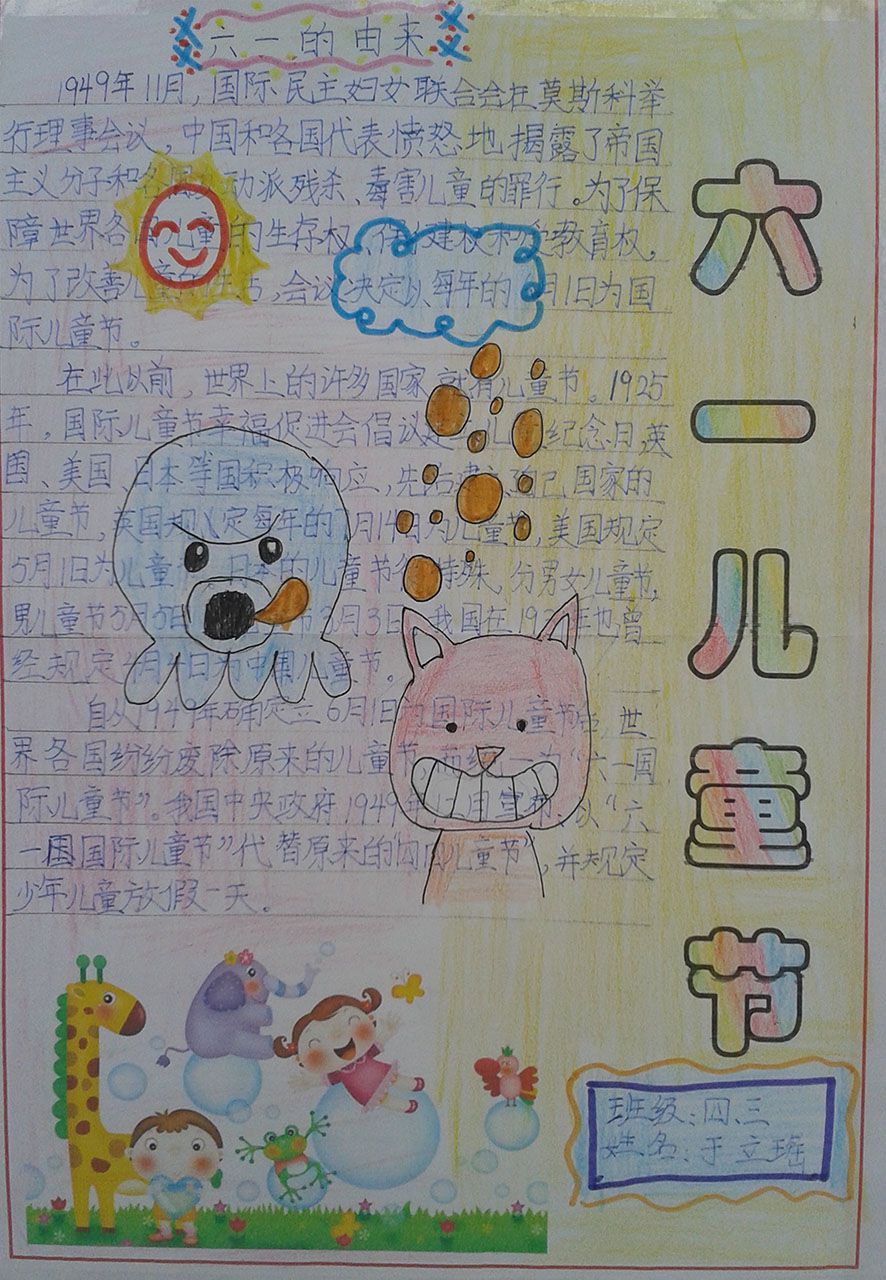 六一的由来
1949年11月,国际民主妇女联合会在莫斯科举
行理事会议,中国和各国代表愤怒地揭露了帝国
主义分子和各国 动派残杀、毒害儿童的罪行。为了保
障世界各国儿童的生存权、保健权和 教育权,
为了改善儿童的生活,会议决定以每年的 月1日为国
际儿童节。
在此以前,世界上的许多国家就有儿童节。1925
年,国际儿童节幸福促进会倡议 儿 纪念日,英
国、美国、日本等国积极响应,先后建立自己国家的
儿童节,英国规定每年的 月14日为儿童节,美国规定
5月1日为儿童 日本的儿童节 特殊,分男女儿童节,
男儿童节5月5日 节3月3日 我国在19 年也曾
经规定4月4日为中国儿童节。
自从1949年确定立6月1日为国际儿童节 世
界各国纷纷废除原来的儿童节,而 一为“六一国
际儿童节”。我国中央政府1949年12月宣布,以“六
一国国际儿童节”代替原来的“四四儿童节”,并规定
少年儿童放假一天。
六一儿童节
班级:四.三
姓名:于立瑶